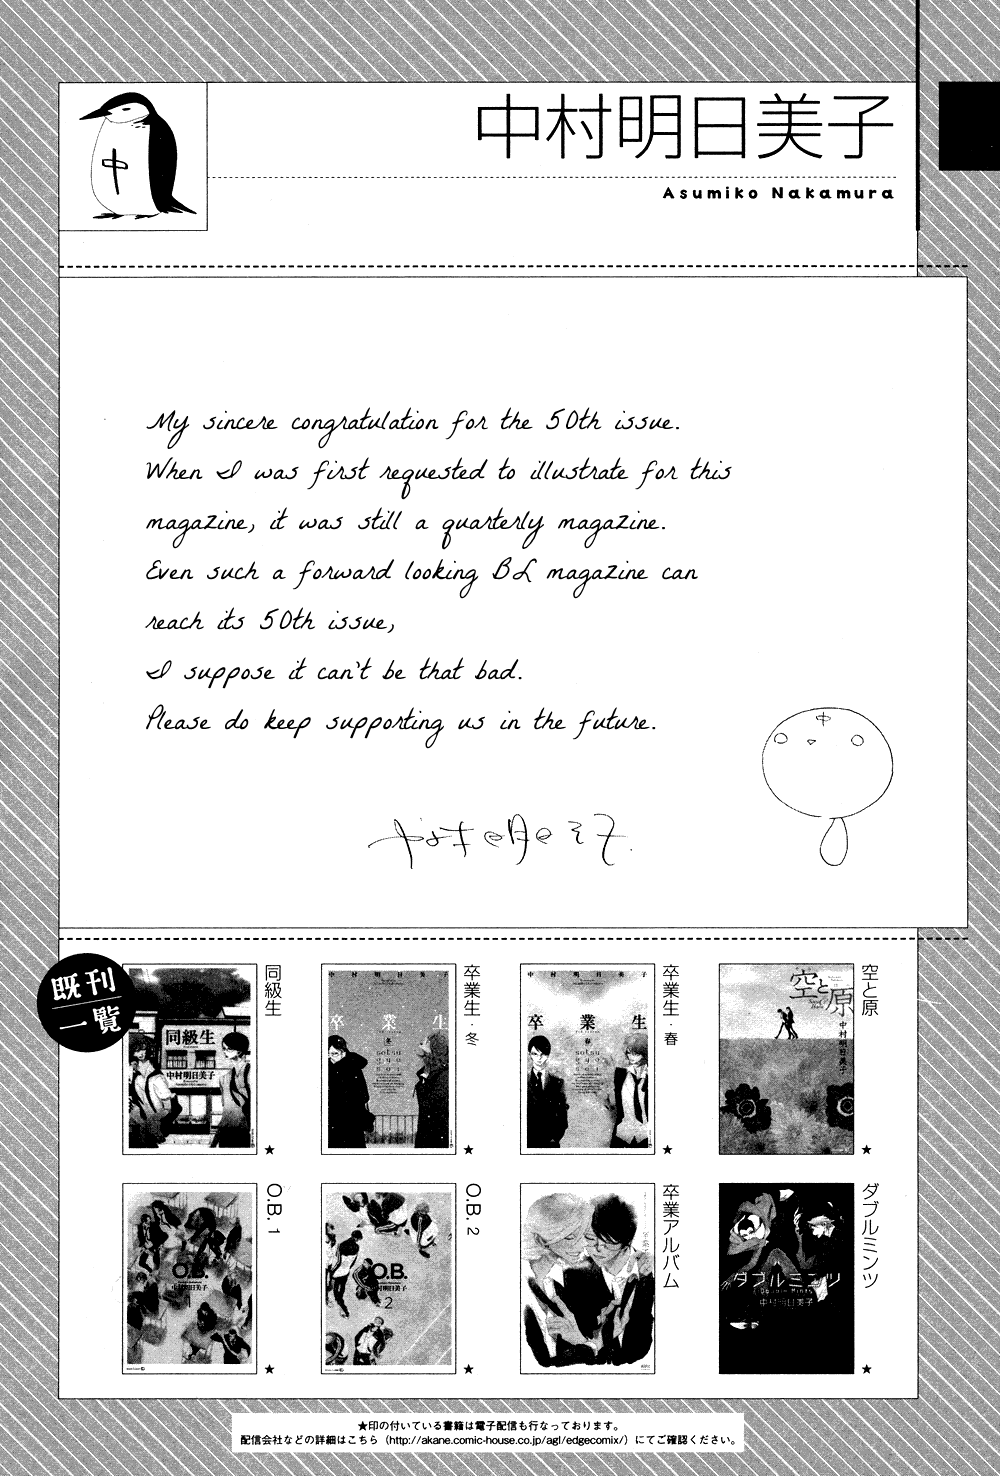 中
中村明日美子
Asumiko Nakamura
My sincere congratulation for the 50th issue.
When I was first requested to illustrate for this
magazine, it was still a quarterly magazine.
Even such a forward looking BL magazine can
reach its 50th issue,
I suppose it can't be that bad.
Please do keep supporting us in the future.
中
中村明日美子
既刊
一覧
同級生
中村明日美子
同級生
★
中村明日美子
卒業生
冬
sotsu
gyo
sei
卒業生・冬
★
中村明日美子
卒業生
春
sotsu
gyo
sei
卒業生・春
★
空と原
中村明日美子
空と原
★
O.B.
中村明日美子
1
O.B. 1
★
O.B.
中村明日美子
2
O.B. 2
★
卒業アルバム
ダブルミンツ
Double Mints
中村明日美子
ダブルミンツ
★
★印の付いている書籍は電子配信も行なっております。
配信会社などの詳細はこちら（http://akane.comic-house.co.jp/agl/edgecomix/）にてご確認ください。